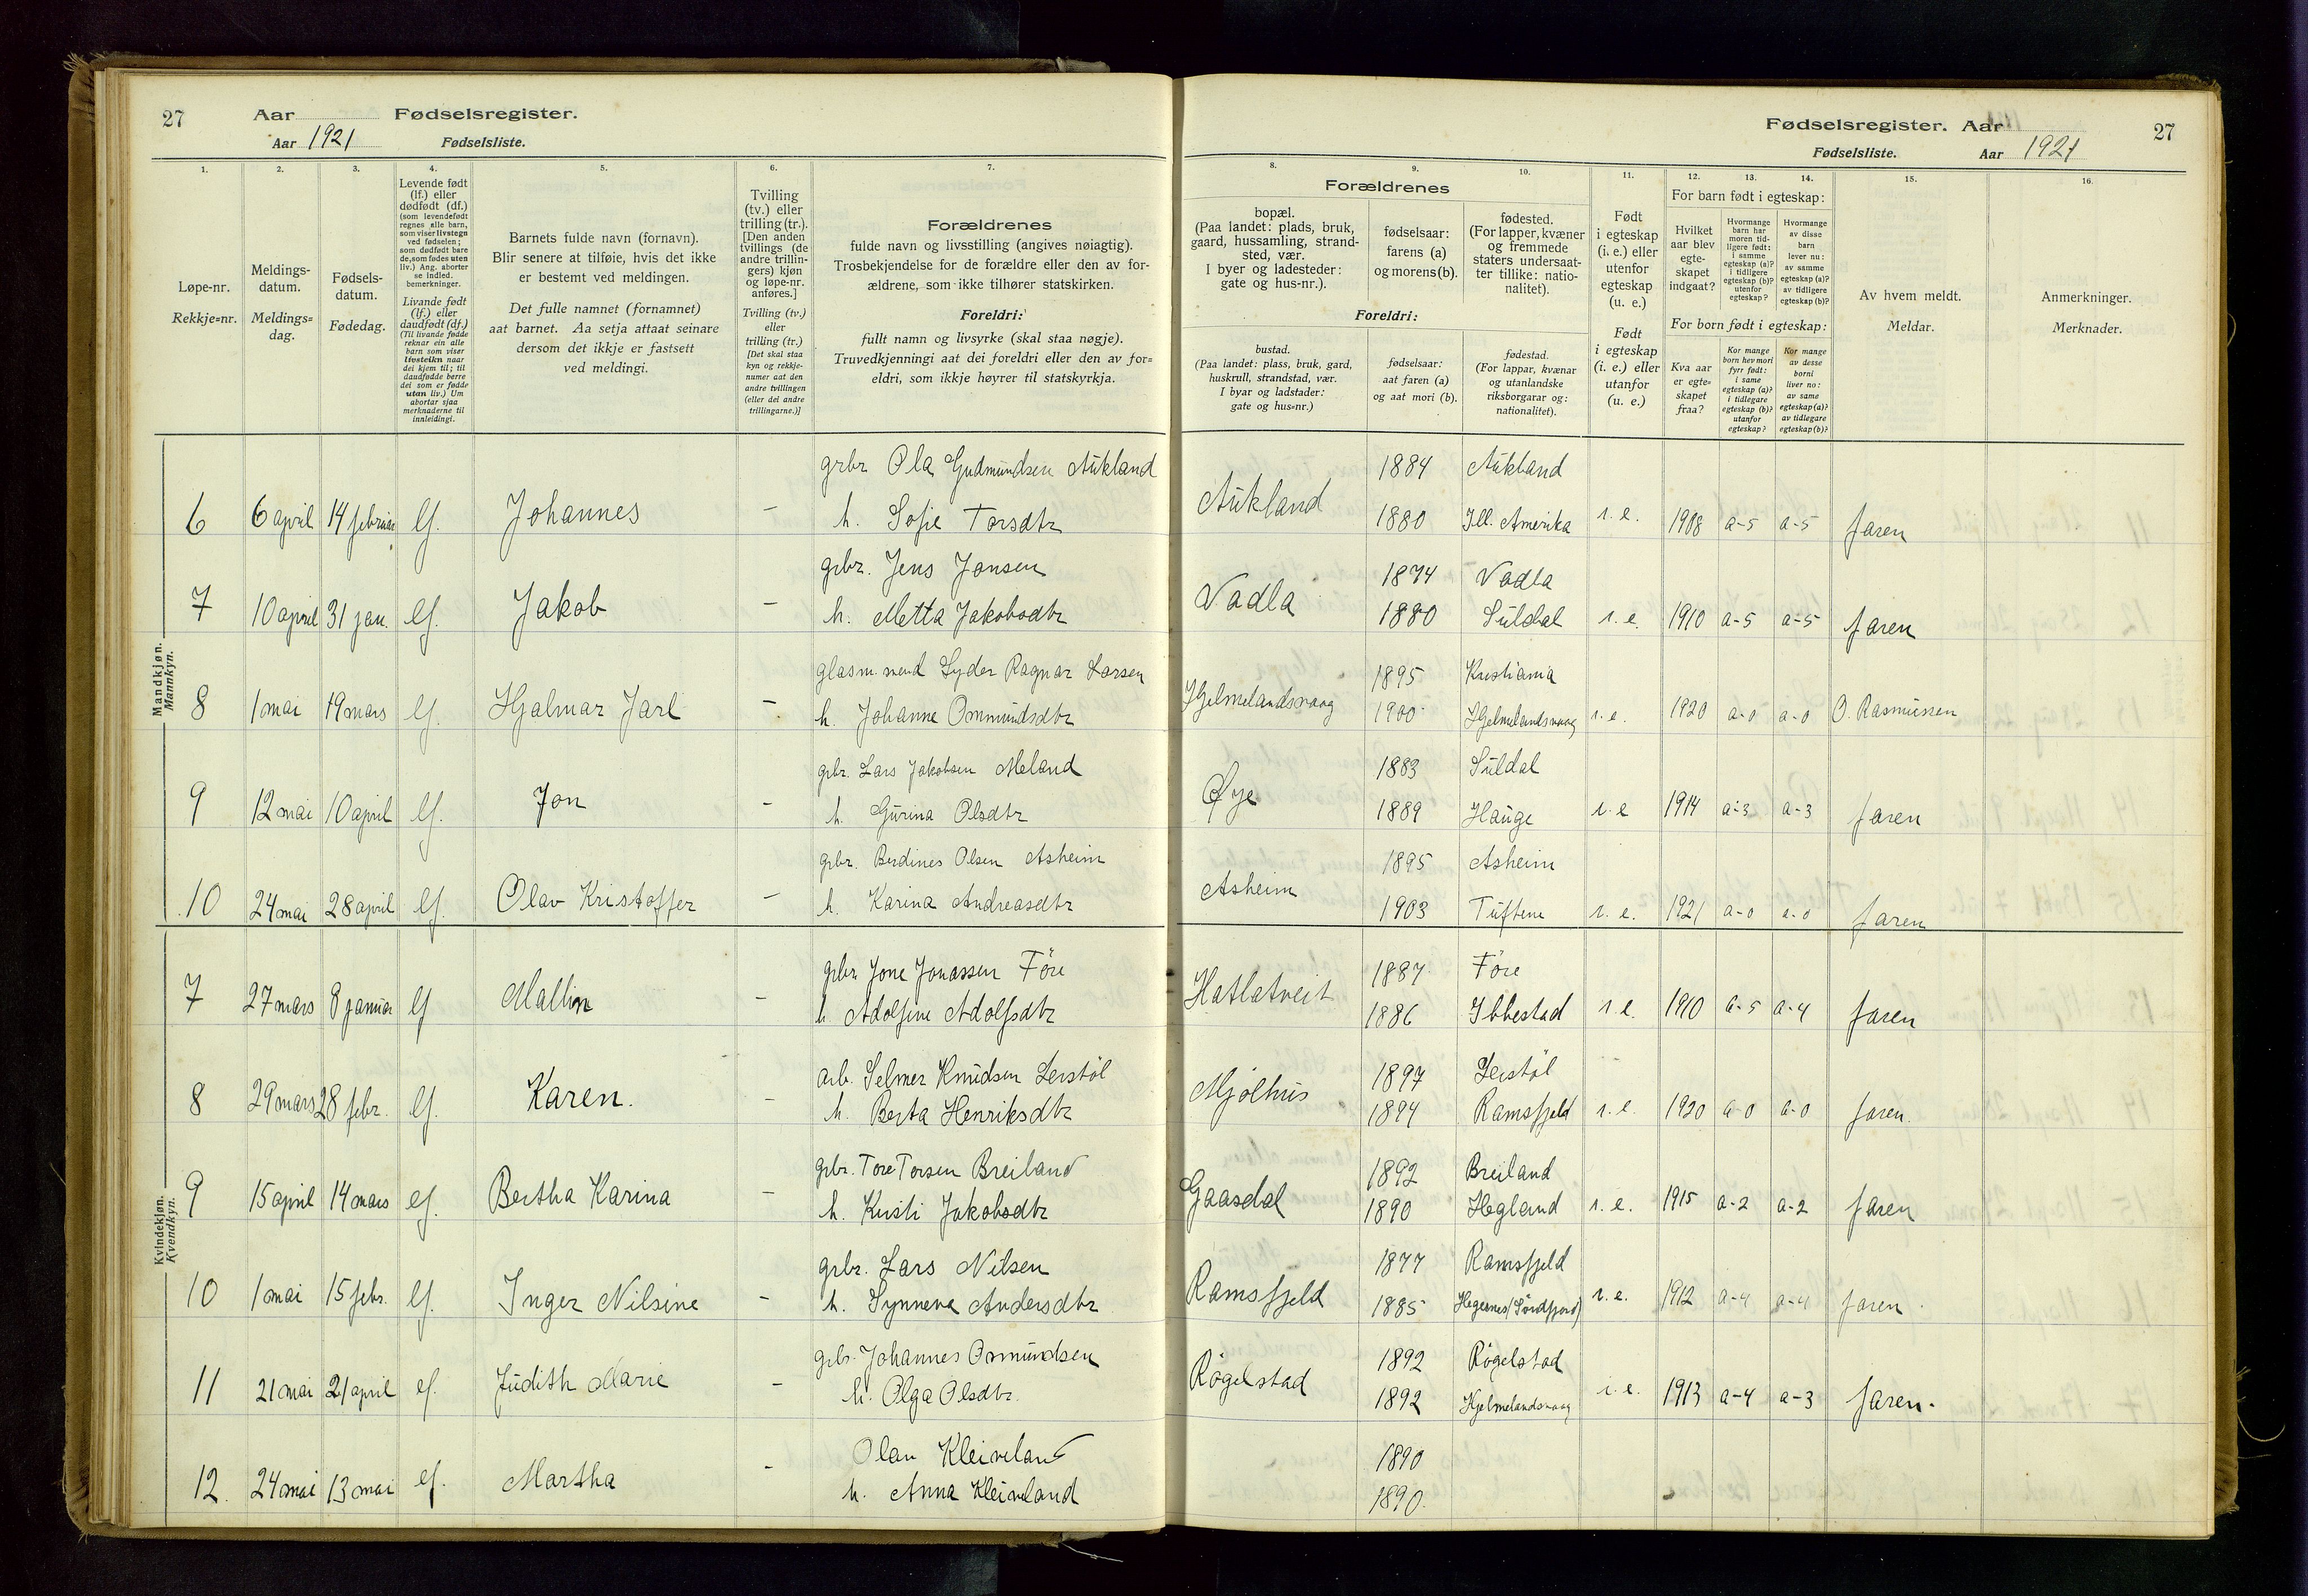 27
Aar
Fødselsregister.
Aar 1921
Fødselsliste.
1.
2.
3.
4.
5.
6.
7.
Løpe-nr.
Rekkje=nr.
Meldings-
datum.
Meldings=
dag.
Fødsels-
datum.
Fødedag.
Levende født
(lf.) eller
dødfødt (df.)
(som levendefødt
regnes alle barn,
som viser livstegn
ved fødselen;
som dødfødt bare
de, som fødes uten
liv.) Ang. aborter
se indled.
bemerkninger.
Livande født
(lf.) eller
daudfødt (df.)
(Til livande fødde
reknar ein alle
barn som viser
livsteikn naar
dei kjem til; til
daudfødde berre
dei som er fødde
utan liv.) Um
abortar sjaa
merknaderne til
innleidingi.
Barnets fulde navn (fornavn).
Blir senere at tilføie, hvis det ikke
er bestemt ved meldingen.
Det fulle namnet (fornamnet)
aat barnet. Aa setja attaat seinare
dersom det ikkje er fastsett
ved meldingi.
Tvilling
(tv.) eller
trilling (tr.).
[Den anden
tvillings (de
andre trillin-
gers) kjøn
og løpe-nr.
anføres.]
Tvilling (tv.)
eller
trilling (tr.)
[Det skal staa
kyn og rekkje-
numer aat den
andre tvillingen
(eller dei andre
trillingarne.)]
Forældrenes
fulde navn og livsstilling (angives nøiagtig).
Trosbekjendelse for de forældre eller den av for-
ældrene, som ikke tilhører statskirken.
Foreldri:
fullt namn og livsyrke (skal staa nøgje).
Truvedkjenningi aat dei foreldri eller den av for=
eldri, som ikkje høyrer til statskyrkja.
Mandkjøn.
Mannkyn.
6 6 april 14 februar lf. Johannes - grbr Ola Gudmundsen Aukland
h. Sofie Torsdtr
7 10 april 31 jan. lf. Jakob - grbr. Jens Jonsen
h. Metta Jakobsdtr
8 1 mai 19 mars lf. Hjalmar Jarl - Lyder Ragnar Larsen
h. Johanne Ommundsdtr
9 12 mai 10 april lf. Jon - grbr. Lars Jakobsen Meland
h. Gurina Olsdtr
10 24 mai 28 april lf. Olav Kristoffer - grbr. Berdines Olsen Asheim
h. Karina Andreasdtr
Kvindekjøn.
Kvendkyn.
7 27 mars 8 januar lf Mallin - grbr Jone Jonassen Före
h Adolfine Adolfsdtr
8 29 mars 28 febr. lf. Karen. - arb. Selmer Knudsen Leistöl
h. Berta Henriksdtr
9 15 april 14 mars lf. Bertha Karina - grbr. Tore Torsen Breiland
h. Kristi Jakobsdtr
10 1 mai 15 febr. lf. Inger Nilsine - grbr. Lars Nilsen
h. Synneva Andersdtr
11 21 mai 21 april lf. Judith Marie - grbr. Johannes Osmundsen
h. Olga Olsdtr.
12. 24 mai 13 mai lf. Martha - Olav Kleiveland
h. Anna Kleiveland
Fødselsregister. Aar
Fødselsliste.
Aar 1921
27
8.
9.
10.
11.
12.
13.
14.
15.
16.
Forældrenes
bopæl.
(Paa landet: plads, bruk,
gaard, hussamling, strand-
sted, vær.
I byer og ladesteder:
gate og hus-nr.).
fødselsaar:
farens (a)
og morens (b).
fødested.
(For lapper, kvæner
og fremmede
staters undersaat-
ter tillike: natio-
nalitet).
Foreldri:
bustad.
(Paa landet: plass, bruk, gard,
huskrull, strandstad, vær.
I byar og ladstader:
gate og hus-nr.)
fødselsaar:
aat faren (a)
og aat mori (b).
fødestad.
(For lappar, kvænar
og utanlandske
riksborgarar og:
nationalitet).
Født
i egteskap
(i. e.) eller
utenfor
egteskap
(u. e.)
Født
i egteskap
(i. e.) eller
utanfor
egteskap
(u. e.)
For barn født i egteskap:
Hvilket
aar blev
egte-
skapet
indgaat?
Hvormange
barn har
moren tid-
ligere født:
i samme
egteskap (a)?
i tidligere
egteskap (b)?
utenfor
egteskap?
Hvormange
av disse
barn
lever nu:
av samme
egteskap (a)?
av tidligere
egteskap (b)?
For born født i egteskap:
Kva aar
er egte=
skapet
fraa?
Kor mange
born hev mori
fyrr født:
i same
egteskap (a)?
i tidlegare
egteskap (b)?
utanfor
egteskap?
Kor mange
av desse
borni
liver no:
av same
egteskap (a)?
av tidlegare
egteskap (b)?
Av hvem meldt.
Meldar.
Anmerkninger.
Merknader.
1884 Aukland
Aukland 1880 Ill. Amerika i. e. 1908 a-5 a-5 faren
1874 Vadla
Vadla 1880 Suldal i. e. 1910 a-5 a-5 faren
1895 Kristiania
Hjelmelandsvaag 1900 Hjelmelandsvaag i. e. 1920 a-0 a-0 O. Rasmussen
1883 Suldal
Øye 1889 Hauge i. e 1914 a-3 a-3 faren
1895 Asheim
Asheim 1903 Tuftene i. e. 1921 a-0 a-0 faren
1887 Före
Hatlatveit 1886 Ibbestad i. e. 1910 a-5 a-4 faren
1897 Leistöl
Mjölhus 1894 Ramsfjeld i. e. 1920 a-0 a-0 faren.
1892 Breiland
Gaasdal 1890 Hegland i. e. 1915 a-2 a-2 faren
1877 Ramsfjeld
Ramsfjeld 1885 Hegernes (Söndfjord) i. e. 1912 a-4 a-4 faren
1892 Rögelstad
Rögelstad 1892 Hjelmelandsvaag i. e. 1913 a-4 a-3 faren.
1890
1890.